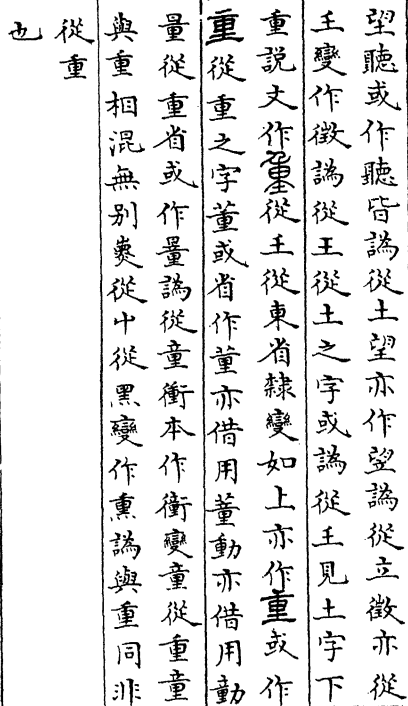 望聽或作聽皆譌從土望亦作望譌從立徵亦從
王變作徵譌從王從土之字或譌從王見土字下
重說文作從王從東省隸變如上亦作重或作
重從重之字董或省作董亦借用董動亦借用動
量從重省或作量譌從童衝本作衝變童從重童
與重相混無別熏從屮從黑變作熏譌與重同非
從重
也